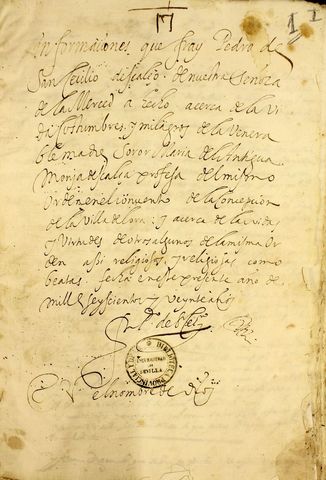 1 1
Informaciones que fray Pedro de
San Cecilio descalço de nuestra señora
de la Merced a hecho acerca de la Vi
da Costumbres, y milagros de la Venera
ble madre Soror Maria de la Antigua
Monja descalça profesa del mismo
Orden en el conuento de la Concepcion
de la Villa de lora: y acerca de la vida
y Virtudes de otros algunos de la misma Or
den assi religiosos, y religiosas como
beatas. fecha en este presente año de
mill y seyscientos y veynte años
BIBLIOTECA
UNIVERSIDAD
DE
SEVILLA
el nombre de Dios